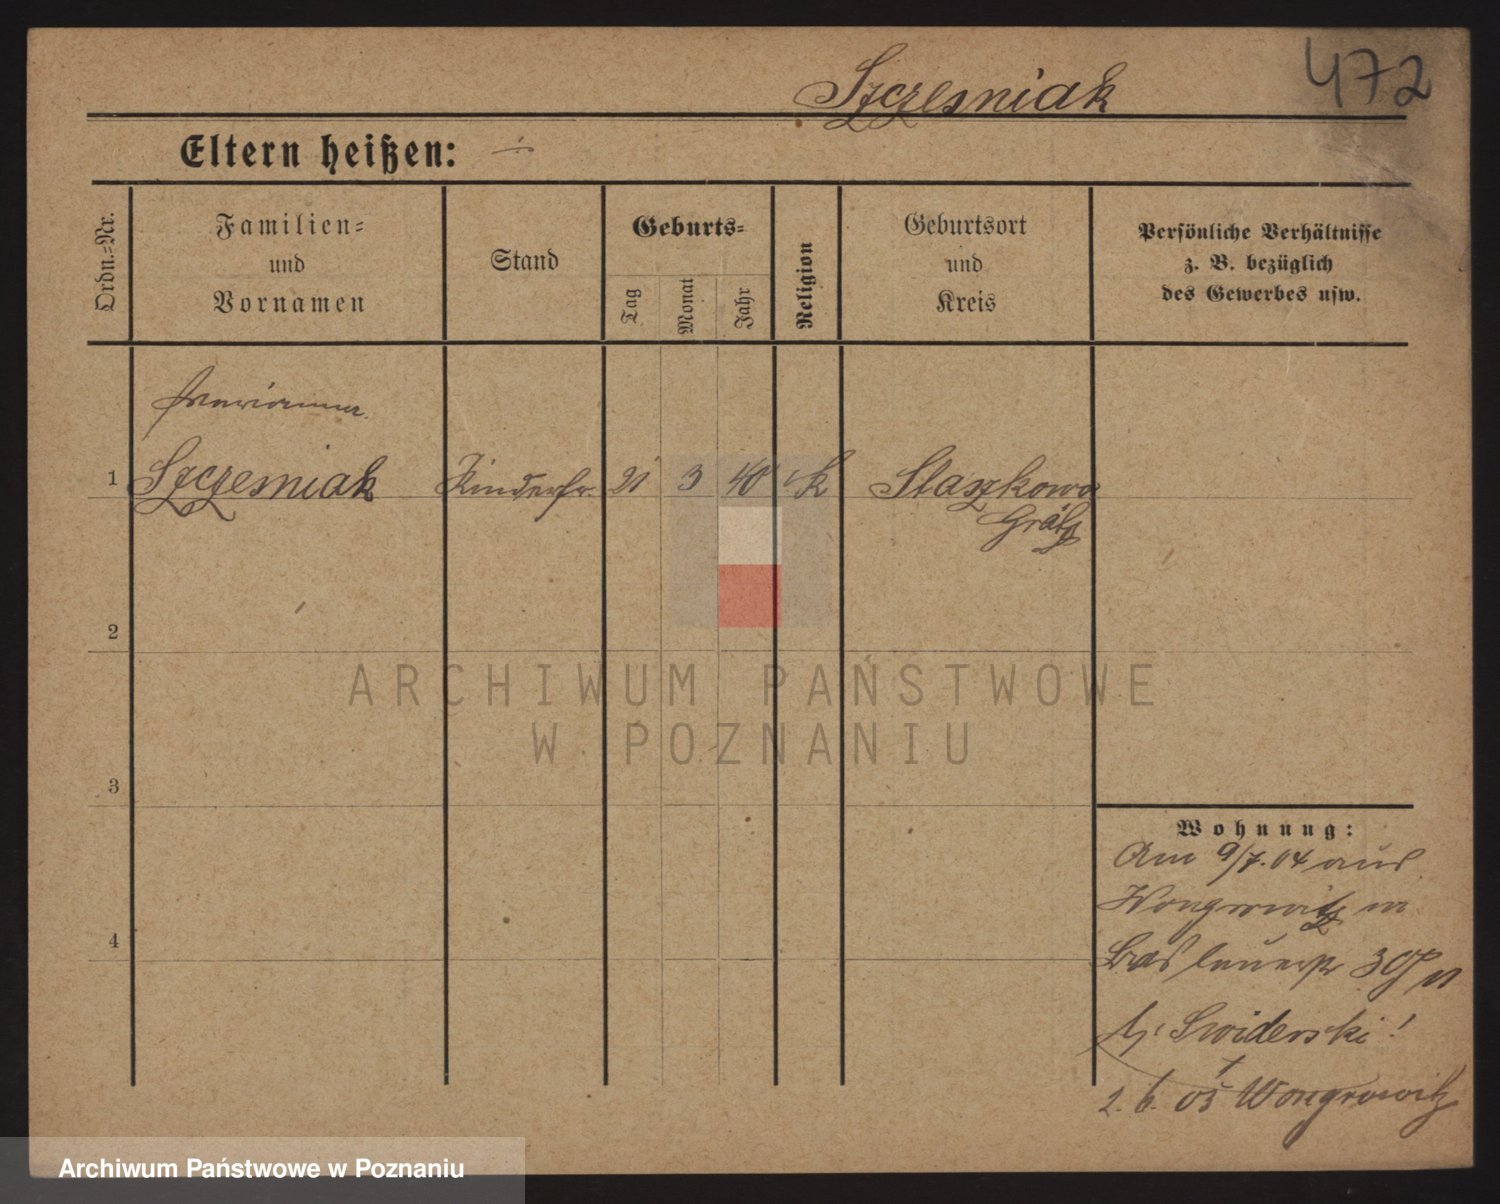 472
Szczesniak
Eltern heißen: ÷
Ordn.=Nr.
Familien=
und
Vornamen
Stand
Geburts=
Tag
Monat
Jahr
Religion
Geburtsort
und
Kreis
Persönliche Verhältnisse
z. B. bezüglich
des Gewerbes usw.
Marianna
1 Szczesniak Kinderfr. 21 3 40 K Staszkowo
Grätz
2
3
4
Wohnung:
Am 9/7. 04 aus
Wongrowitz
30
b/ Swiderski!
2. 6. 05 Wongrowitz
ARCHIWUM PAŃSTWOWE
W POZNANIU
Archiwum Państwowe w Poznaniu